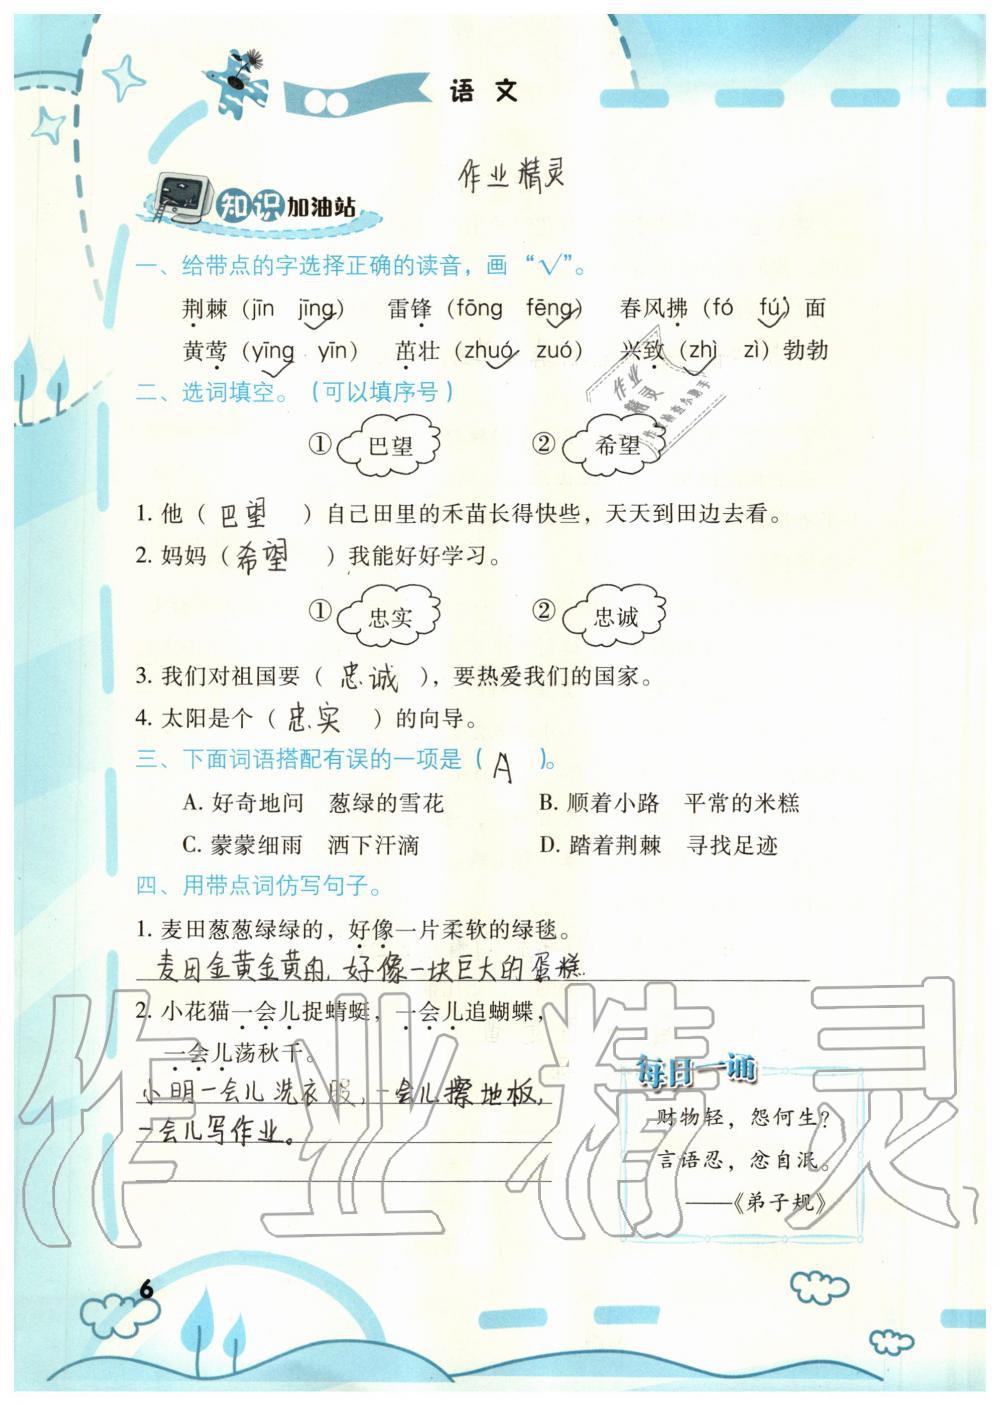 语文
作业精灵
知识加油站
一、给带点的字选择正确的读音，画“√”。
荆棘（jīn jīng） 雷锋（fōng fēng） 春风拂（fó fú）面
黄莺（yīng yīn） 茁壮（zhuó zuó） 兴致（zhì zì）勃勃
二、选词填空。（可以填序号）
① 巴望 ② 希望
作业精灵
1. 他（ 巴望 ）自己田里的禾苗长得快些，天天到田边去看。
2. 妈妈（ 希望 ）我能好好学习。
① 忠实 ② 忠诚
3. 我们对祖国要（ 忠诚 ），要热爱我们的国家。
4. 太阳是个（ 忠实 ）的向导。
三、下面词语搭配有误的一项是（ A ）。
A. 好奇地问 葱绿的雪花 B. 顺着小路 平常的米糕
C. 蒙蒙细雨 洒下汗滴 D. 踏着荆棘 寻找足迹
四、用带点词仿写句子。
1. 麦田葱葱绿绿的，好像一片柔软的绿毯。
麦田金黄金黄的，好像一块巨大的蛋糕.
2. 小花猫一会儿捉蜻蜓，一会儿追蝴蝶，
一会儿荡秋千。
小明一会儿洗衣服，一会儿擦地板，
一会儿写作业。
每日一诵
财物轻，怨何生？
言语忍，忿自泯。
——《弟子规》
作业精灵
6